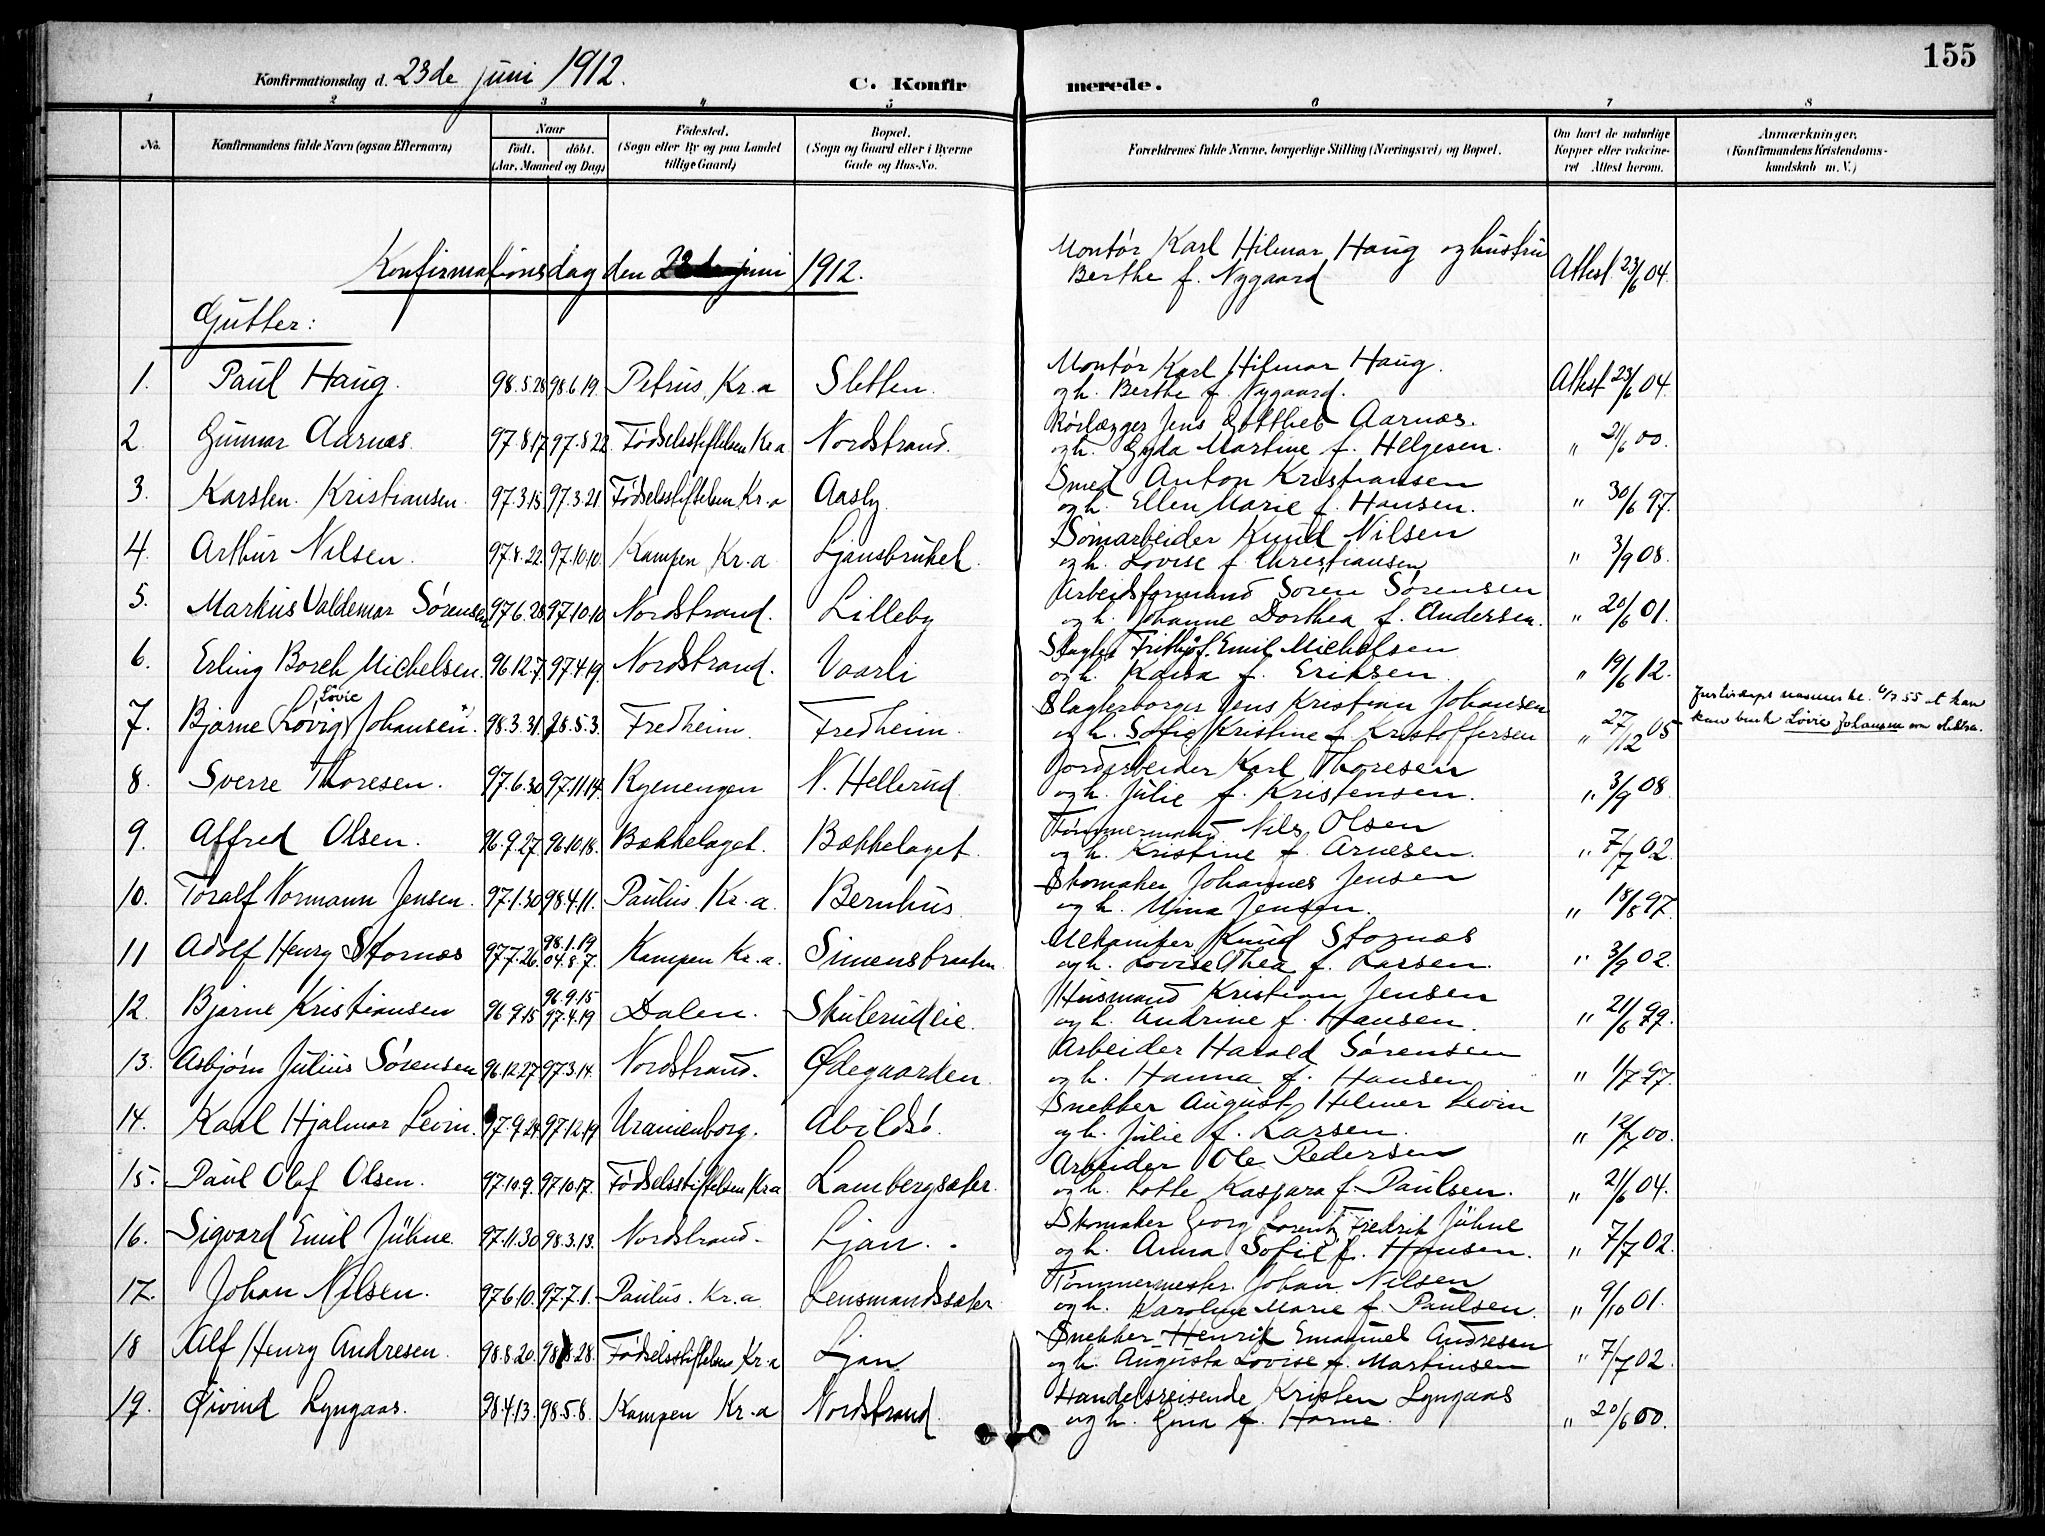 155
Konfirmationsdag d. 23de juni 1912.
C. Konfirmerede.
1 2 3 4 5 6 7 8
No. Konfirmandens fulde Navn (ogsaa Efternavn) Naar født. døbt. (Aar, Maaned og Dag) Fødested. (Sogn eller By og paa Landet tillige Gaard) Bopæl. (Sogn og Gaard eller i Byerne Gade og Hus-No. Forældrenes fulde Navne, borgerlige Stilling (Næringsvei) og Bopæl. Om havt de naturlige Kopper eller vakcineret Attest herom. Anmærkninger. (Konfirmandens Kristendomskundskab m. V.)
Konfirmationsdag den 1912.
Montør Karl Hilmar Haug og hustru
Berthe f. Nygaard Attest 23/6 04.
Gutter:
1. Paul Haug. 98.5.28 98.6.19. Petrus, Kr.a Sletten. Montør Karl Hilmar Haug.
og h. Berthe f. Nygaard. Attest 23/6 04.
2. Gunnar Aarnæs. 97.8.17 97.8.22 Fødselsstiftelsen Kr.a Nordstrand. Rørlægger Jens Gottlieb Aarnæs.
og h. Gyda Martine f. Helgesen. " 21/6 00.
3. Karsten Kristiansen. 97.3.15 97.3.21 Fødselsstiftelsen Kr.a Aasly. Smed Anton Kristiansen
og h. Ellen Marie f. Hansen. " 30/6 97.
4. Arthur Nilsen. 97.8.22. 97.10.10. Kampen Kr.a Ljansbruket. Tomarbeider Knud Nilsen
og h. Lovise f. Christiansen " 3/9 08.
5. Markus Valdemar Sørensen 97.6.28 97.10.10 Nordstrand. Lilleby Arbeidsformand Søren Sørensen
og h. Johanne Dorthea f. Andersen. " 20/6 01.
6. Erling Borch Michelsen. 96.12.7. 97.4.19. Nordstrand. Vaarli Slagter Frithjof Emil Michelsen
og h. Kaisa f. Eriksen. " 19/6 12.
Løvie
7. Bjarne Lovig Johansen. 98.3.31. 98.5.3. Fredheim. Fredheim. Slagterborger Jens Kristian Johansen
og h. Sofie Kristine f. Kristoffersen " 27/12 05
Løvie Johansen
8. Sverre Thoresen. 97.6.30 97.11.14. Ryenengen N. Hellerud. Jordarbeider Karl Thoresen
og h. Julie f. Kristensen. " 3/9 08.
9. Alfred Olsen. 96.9.27. 96.10.18. Bækkelaget. Bækkelaget. Tømmermand Nils Olsen
og h. Kristine f. Arnesen. " 7/7 02.
10. Toralf Normann Jensen. 97.1.30 98.4.11. Paulus. Kr.a. Bernhus Skomaker Johannes Jensen
og h. Mina Jensen. " 18/8 97.
11 Adolf Henry Stornæs 97.7.26. 98.1.19 04.8.7. Kampen Kr.a. Simensbraaten Mekaniker Knud Stornæs
og h. Lovise Thea f. Larsen. " 3/9 02.
12. Bjarne Kristiansen 96.9.15 96.9.15 97.4.19 Dalen. Skulerudeie. Husmand Kristian Jensen
og h. Andrine f. Hansen. " 21/6 99.
13. Asbjørn Julius Sørensen 96.12.27. 97.3.14. Nordstrand. Ødegaarden. Arbeider Harald Sørensen
og h. Hanna f. Hansen " 1/7 97.
14. Karl Hjalmar Levin. 97.9.24. 97.12.19 Uranienborg. Abildsø. Snekker August Helmer Levin
og h. Julie f. Larsen. " 12/7 00.
15. Paul Olaf Olsen. 97.10.9. 97.10.17. Fødselsstiftelsen Kr.a Lambergsæter. Arbeider Ole Pedersen
og h. Lotte Kaspara f. Paulsen. " 21/6 04.
16. Sigvard Emil Jühne. 97.11.30 98.3.13. Nordstrand. Ljan. Skomaker Georg Lorentz Fredrik Jühne
og h. Anna Sofie f. Hansen. " 7/7 02.
17. Johan Nilsen. 97.6.10. 97.7.1. Paulus. Kr.a Lensmandssæter Tømmermester Johan Nilsen
og h. Karoline Marie f. Paulsen. " 9/10 01.
18 Alf Henry Andresen. 98.8.20. 98.8.28. Fødselsstiftelsen, Kr.a Ljan. Snekker Henrik Emanuel Andresen
og h. Augusta Lovise f. Martinsen " 7/7 02.
19. Øivind Lyngaas. 98.4.13. 98.5.8. Kampen Kr.a Nordstrand. Handelsreisende Kristen Lyngaas
og h. Gina f. Horne. " 20/6 00.